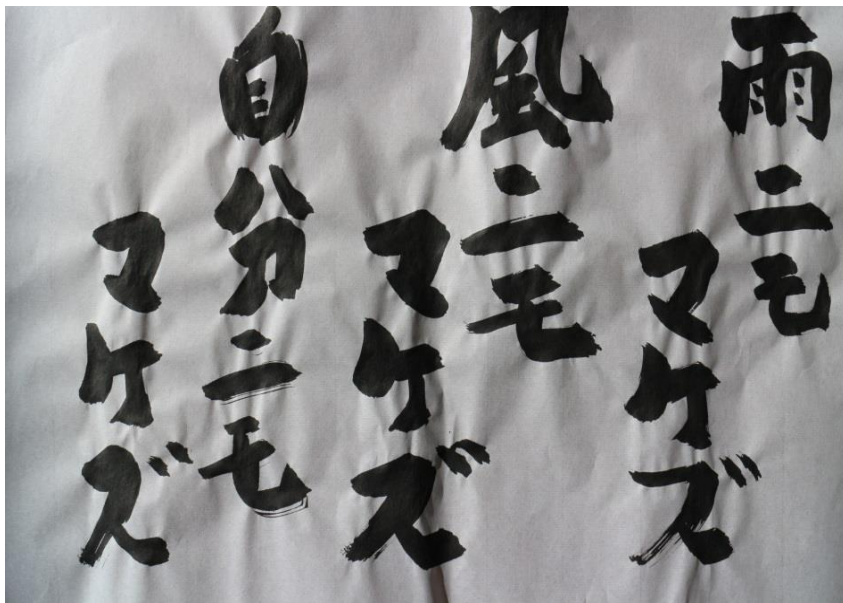 雨ニモ
マケズ
風ニモ
マケズ
自分ニモ
マケズ